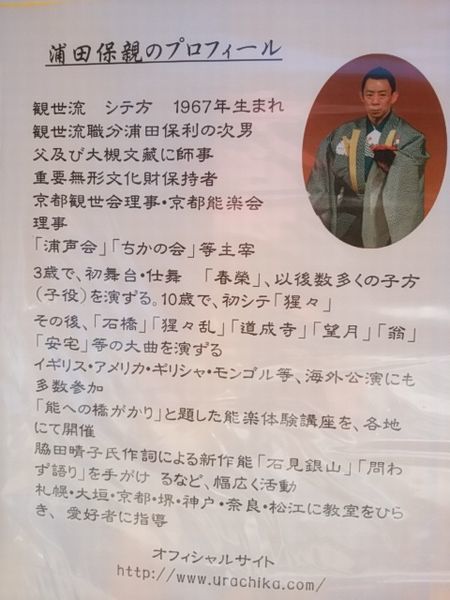 浦田保親のプロフィール
観世流　シテ方　1967年生まれ
観世流職分浦田保利の次男
父及び大槻文藏に師事
重要無形文化財保持者
京都観世会理事・京都能楽会
理事
「浦声会」「ちかの会」等主宰
3歳で、初舞台・仕舞　「春榮」、以後数多くの子方
（子役）を演ずる。10歳で、初シテ「猩々」
その後、「石橋」「猩々乱」「道成寺」「望月」「翁」
「安宅」等の大曲を演ずる
イギリス・アメリカ・ギリシャ・モンゴル等、海外公演にも
多数参加
「能への橋がかり」と題した能楽体験講座を、各地
にて開催
脇田晴子氏作詞による新作能「石見銀山」「問わ
ず語り」を手がけ るなど、幅広く活動
札幌・大垣・京都・堺・神戸・奈良・松江に教室をひら
き、愛好者に指導
オフィシャルサイト
http://www.urachika.com/